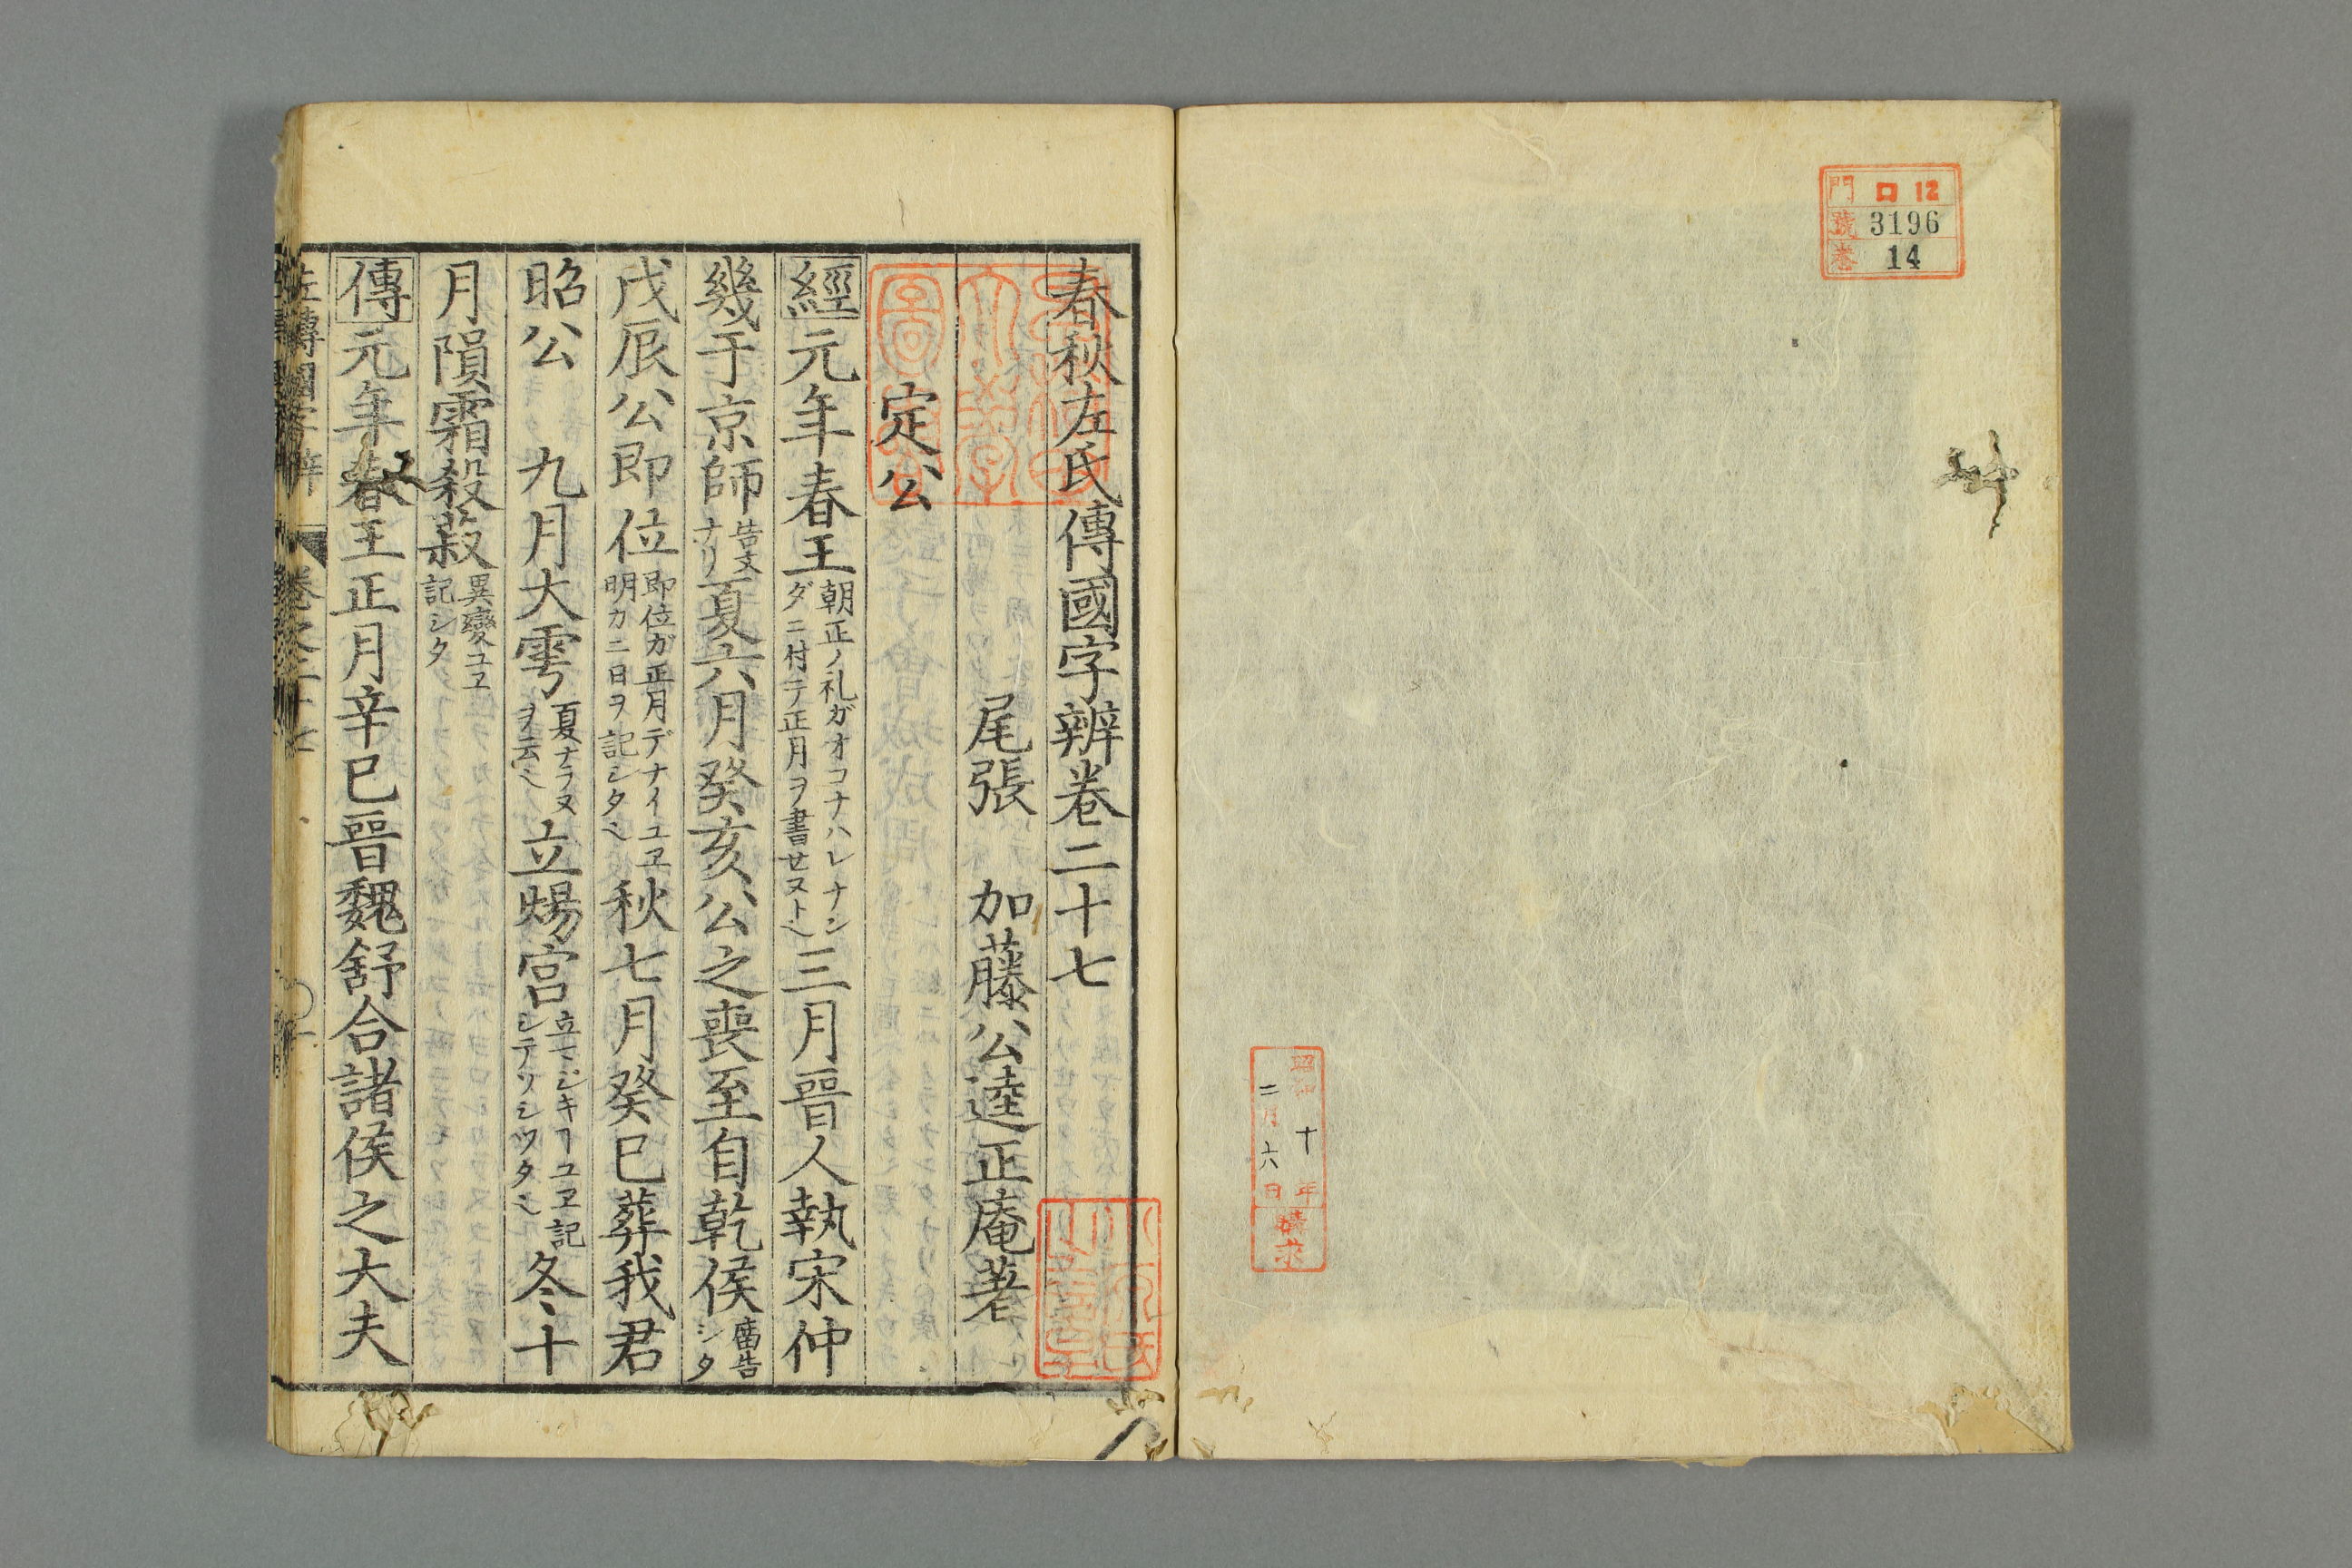 門 ロ 12
號 3196
卷 14
昭和十年
二月六日
購求
春秋左氏傳國字辨卷二十七
尾張 加藤公逵正庵著
定公
經元年春王朝正ノ礼ガオコナハレナンダニ付テ正月ヲ書せヌト三月晉人執宋仲
幾于京師告文ナリ夏六月癸亥公之喪至自乾侯廟告シタ
戊辰公即位即位ガ正月デナイユヱ明カニ日ヲ記シタ秋七月癸巳葬我君
昭公 九月大雩夏ナラヌヲ云立煬宮立マジキヿユヱ記シテソシツタ冬十
月隕霜殺菽異變ユヱ記シタ
傳元年春王正月辛巳晉魏舒合諸侯之大夫
左傳國字辨 卷之二十七